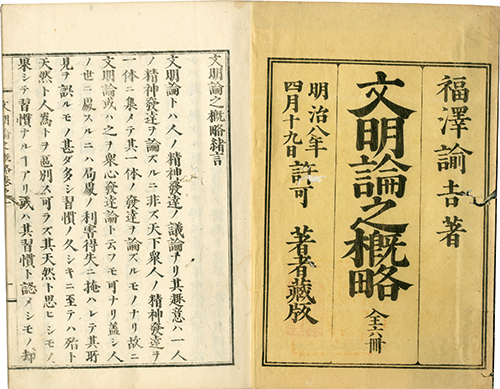 福澤諭吉著
文明論之概略 全六冊
明治八年
四月十九日 許可 著者藏版
文明論之概略緒言
文明論トハ人ノ精神發達ノ議論ナリ其趣意ハ一人
ノ精神發達ヲ論ズルニ非ズ天下衆人ノ精神發達ヲ
一体ニ集メテ其一体ノ發達ヲ論ズルモノナリ故ニ
文明論或ハ之ヲ衆心發達論ト云フモ可ナリ盖シ人
ノ世ニ處スルニハ局處ノ利害得失ニ掩ハレテ其所
見ヲ誤ルモノ甚ダ多シ習慣ノ久シキニ至テハ殆ト
天然ト人為トヲ區別ス可ラズ其天然ト思ヒシモノ
果シテ習慣ナルヿアリ或ハ其習慣ト認メシモノ却
文明論之概略卷之